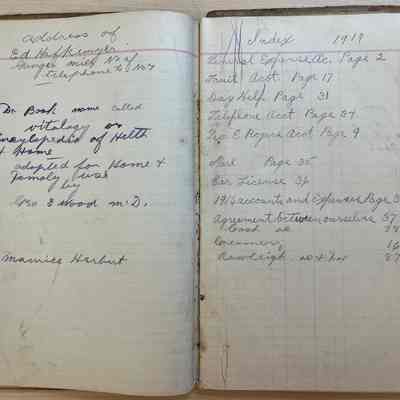 address of
Ed
telephone to No 7
Dr Book name called
vitalogy or
encyclopedia of Helth
& Home
adapted for Home &
Family use
by
Geo E wood M.D.
Maurice Harbut
Index 1919
General Expense Ac. Page 2
Fruit Acct Page 17
Day Help Page 31
Telephone Acct Page 34
Geo E Rogers Acct Page 9
Page 35
Car License 36
1916 accounts and Expenses Page 3
Agreement between ourselves 37
Creamery 16
Rawleigh 87